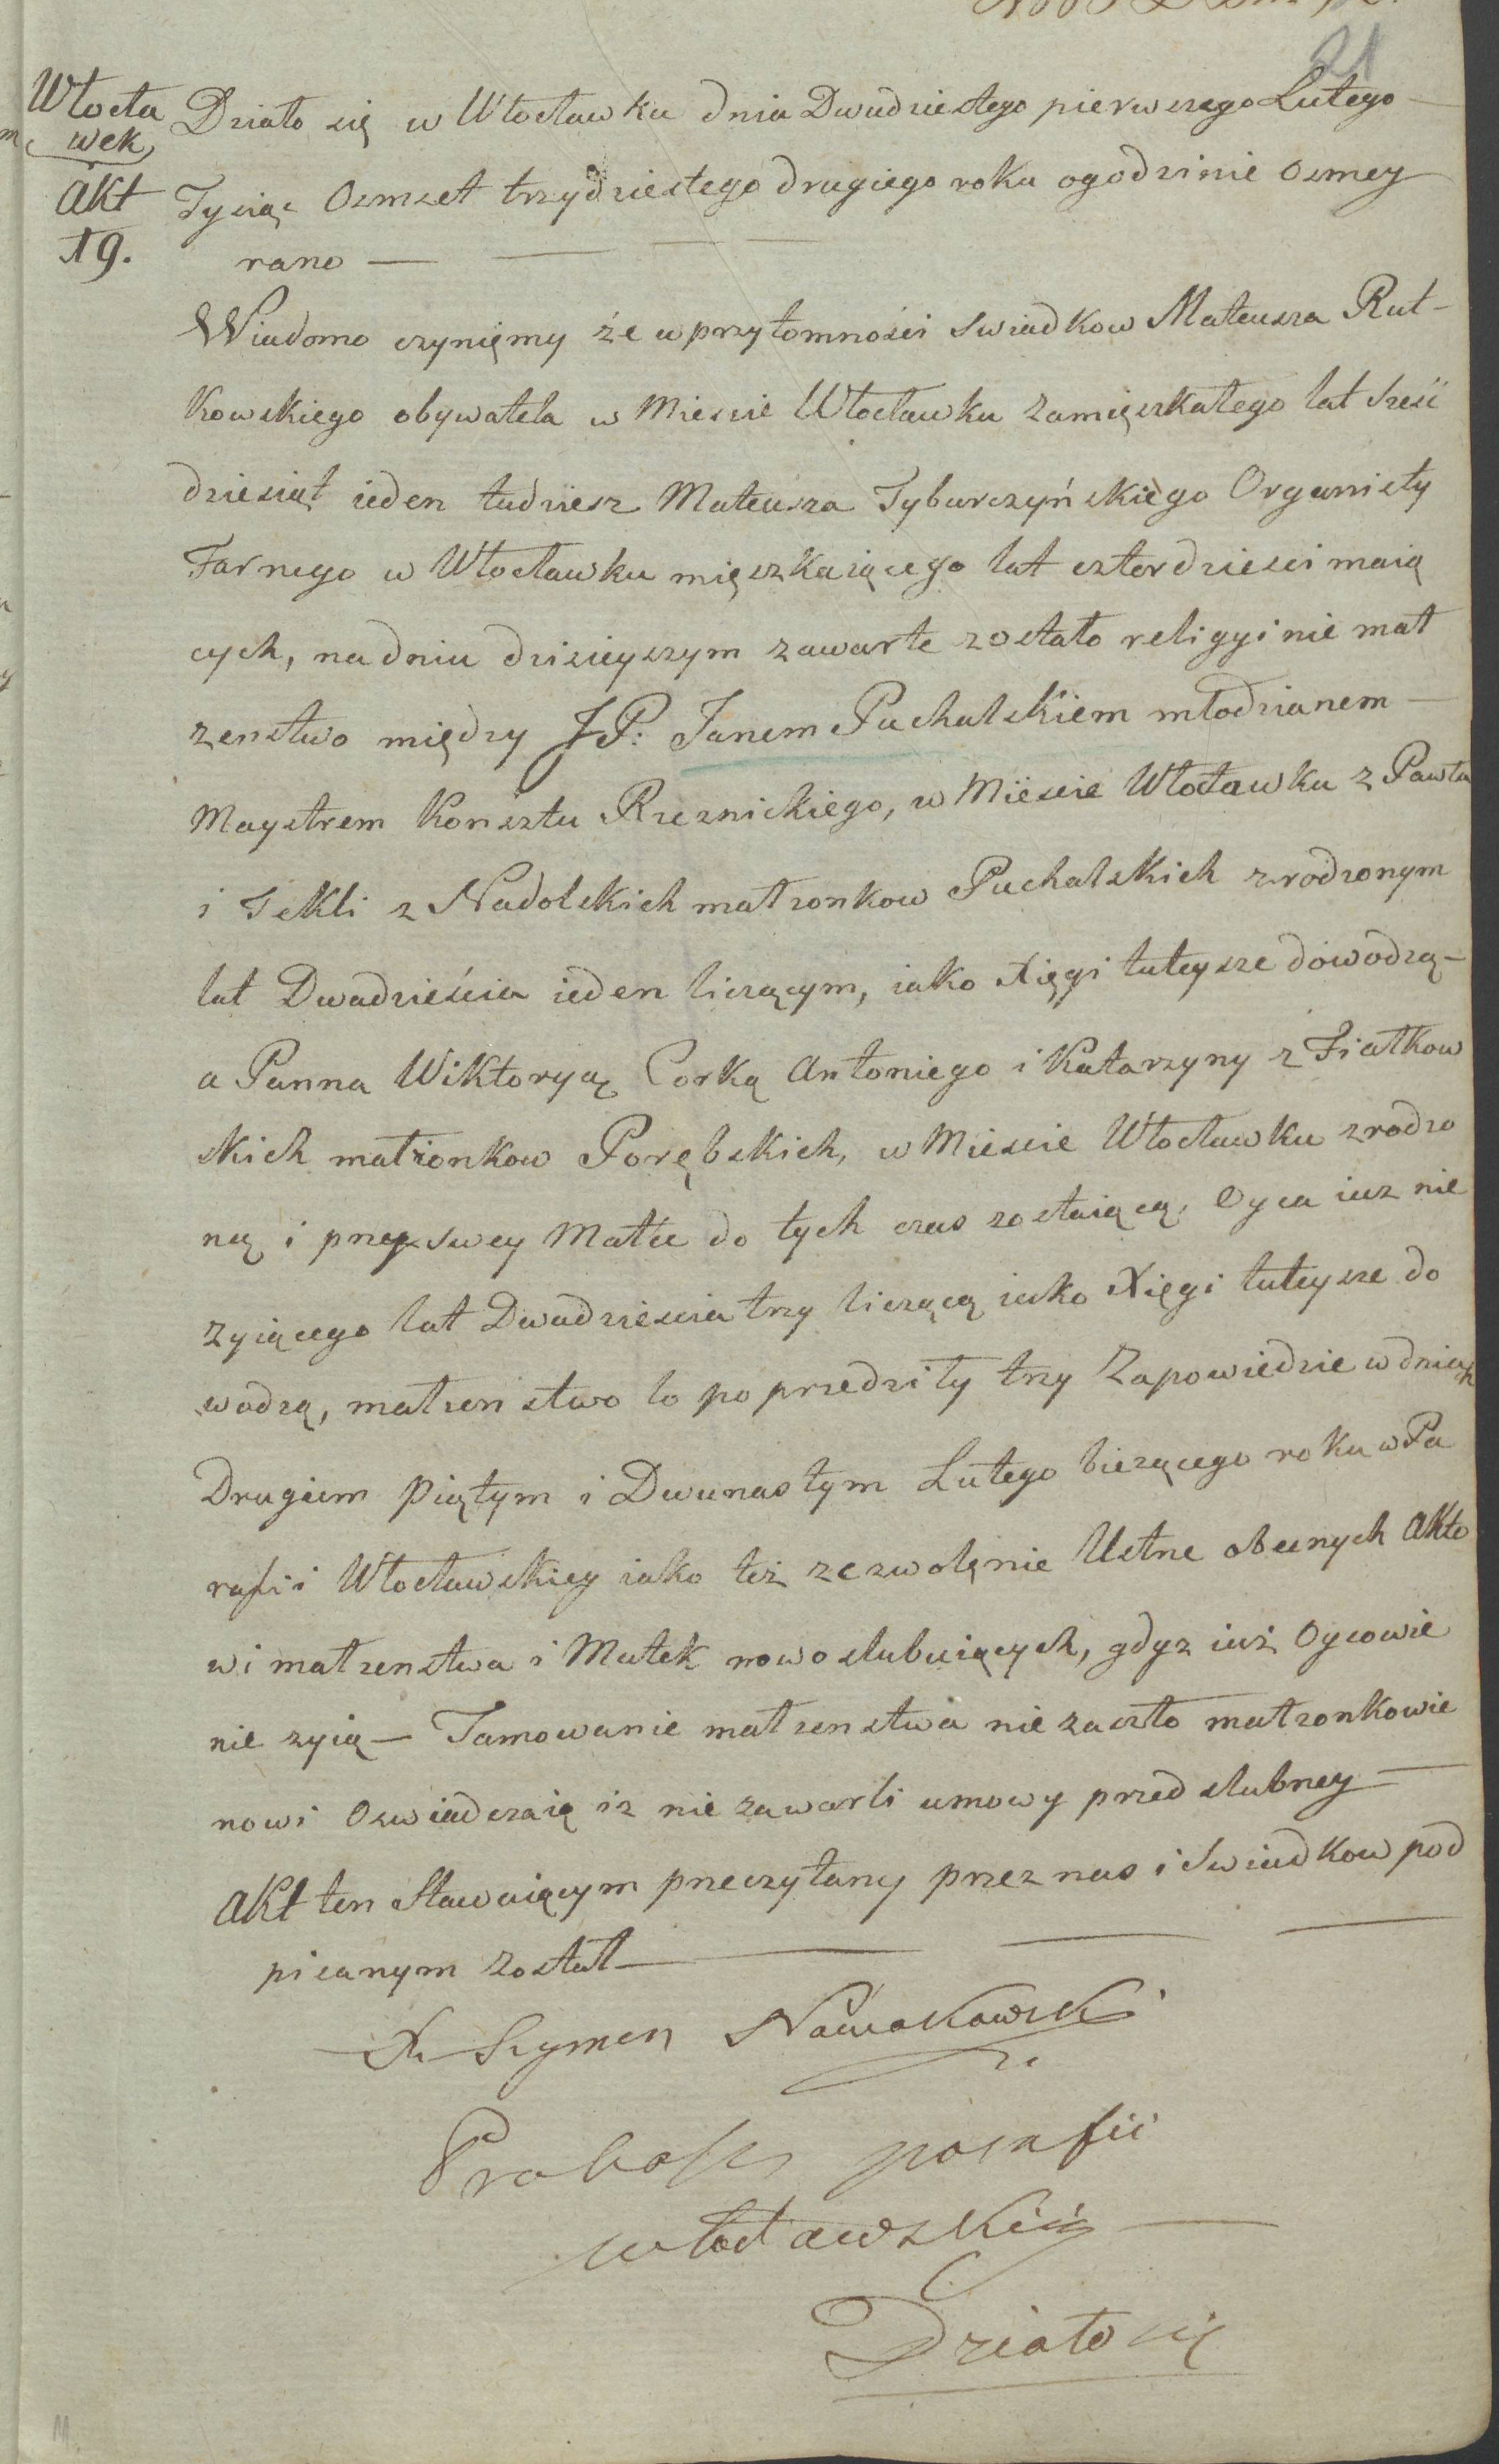 21
Włocła
wek
Akt
19.
Działo się w Włocławku dnia Dwudziestego pierwszego Lutego
Tysiąc Osmset trzydziestego drugiego roku ogodzinie osmey
rano
Wiadomo czynięmy że w przytomności swiadkow Mateusza Rut-
kowskiego obywatela w Miescie Włocławku zamięszkałego lat sześć
dziesiąt ieden tudziesz Mateusza Tyburczyńskiego Organisty
Farnego w Włocławku mięszkaiącego lat czterdziesci maią
cych, na dniu dzisieyszym zawarte zostało religyi nie mał
zenstwo między JP: Janem Puchalskiem młodzianem
Maystrem Konsztu Rzeznickiego, w Mieście Włocławku z Pawła
i Tekli z Nadolskich małzonkow Puchalskich zrodzonym
lat Dwadzieścia ieden liczącym, iako Xięgi tuteysze dowodzą-
a Panna Wiktoryą Corką Antoniego i Katarzyny z Fiałkow
skich małżonkow Porębskich, w Miescie Włocławku zrodzo
ną i przy swey Matce do tych czas zostaiącą, Oyca iuz nie
zyiącego lat Dwadziescia trzy liczącą iako Xięgi tuteysze do
wodzą, małzenstwo to poprzedziły trzy Zapowiedzie w dniach
Drugiem Piątym i Dwunastym Lutego bieżącego roku w Pa
rafii Włocławskiey iako też zezwolęnie Ustne obecnych Akto
wi małzenstwa i Matek nowo slubuiących, gdyz iuż Oycowie
nie zyią — Tamowanie małzenstwa nie zaszło małzonkowie
nowi Oswiadczaią iz nie zawarli umowy przed slubney
Akt ten Stawaiącym przeczytany przez nas i Swiadkow pod
pisanym został
X. Szymon Nowakowski
Proboszcz parafii
włocławskiey
Działo się